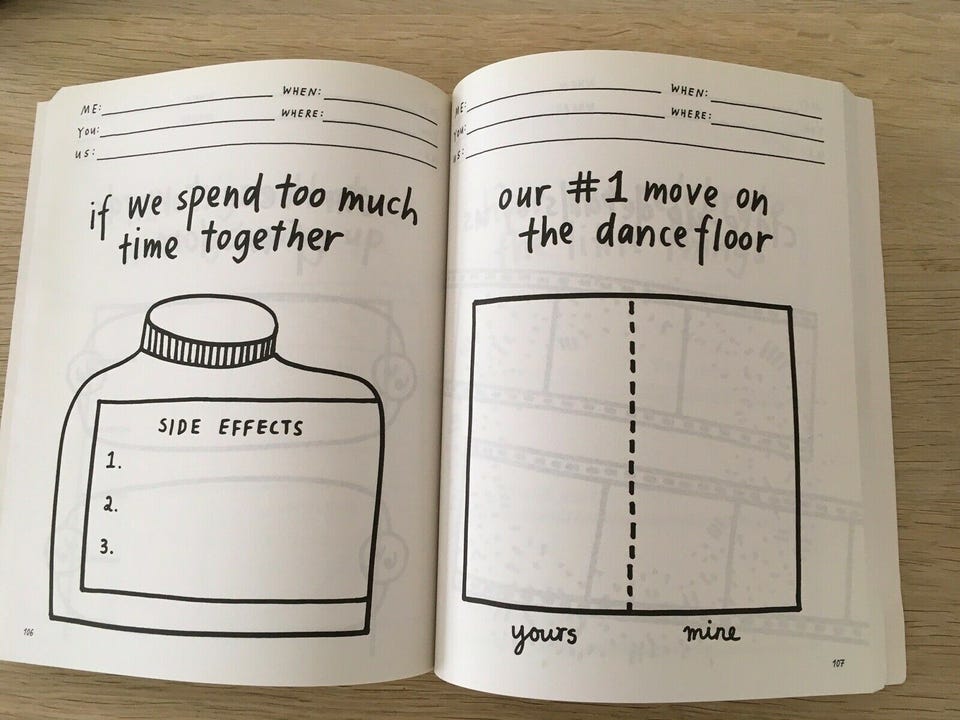 ME: WHEN:
YOU: WHERE:
US:
if we spend too much
time together
SIDE EFFECTS
1.
2.
3.
106
ME: WHEN:
YOU: WHERE:
US:
our #1 move on
the dance floor
yours mine
107